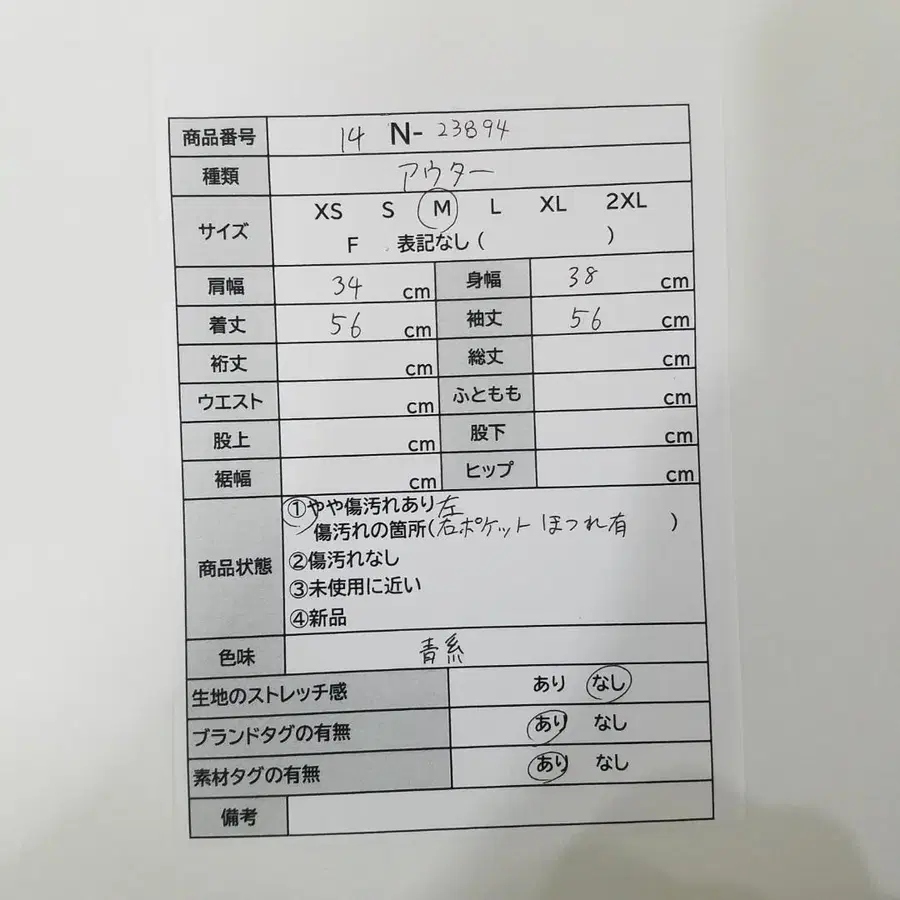 商品番号 14 N- 23894
種類 アウター
サイズ XS S M L XL 2XL
F 表記なし ( )
肩幅 34 cm 身幅 38 cm
着丈 56 cm 袖丈 56 cm
裄丈 cm 総丈 cm
ウエスト cm ふともも cm
股上 cm 股下 cm
裾幅 cm ヒップ cm
商品状態 ①やや傷汚れあり 左
傷汚れの箇所(右ポケット ほつれ有 )
②傷汚れなし
③未使用に近い
④新品
色味 青系
生地のストレッチ感 あり なし
ブランドタグの有無 あり なし
素材タグの有無 あり なし
備考